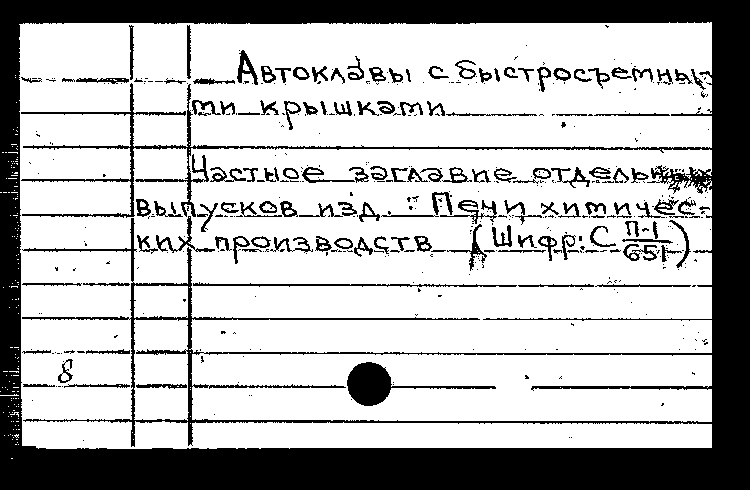 Автоклавы с быстросъемны-
ми крышками.
Частное заглавие отдельных
выпусков изд.: Печи химичес-
ких производств (Шифр: С П-1/651)
8